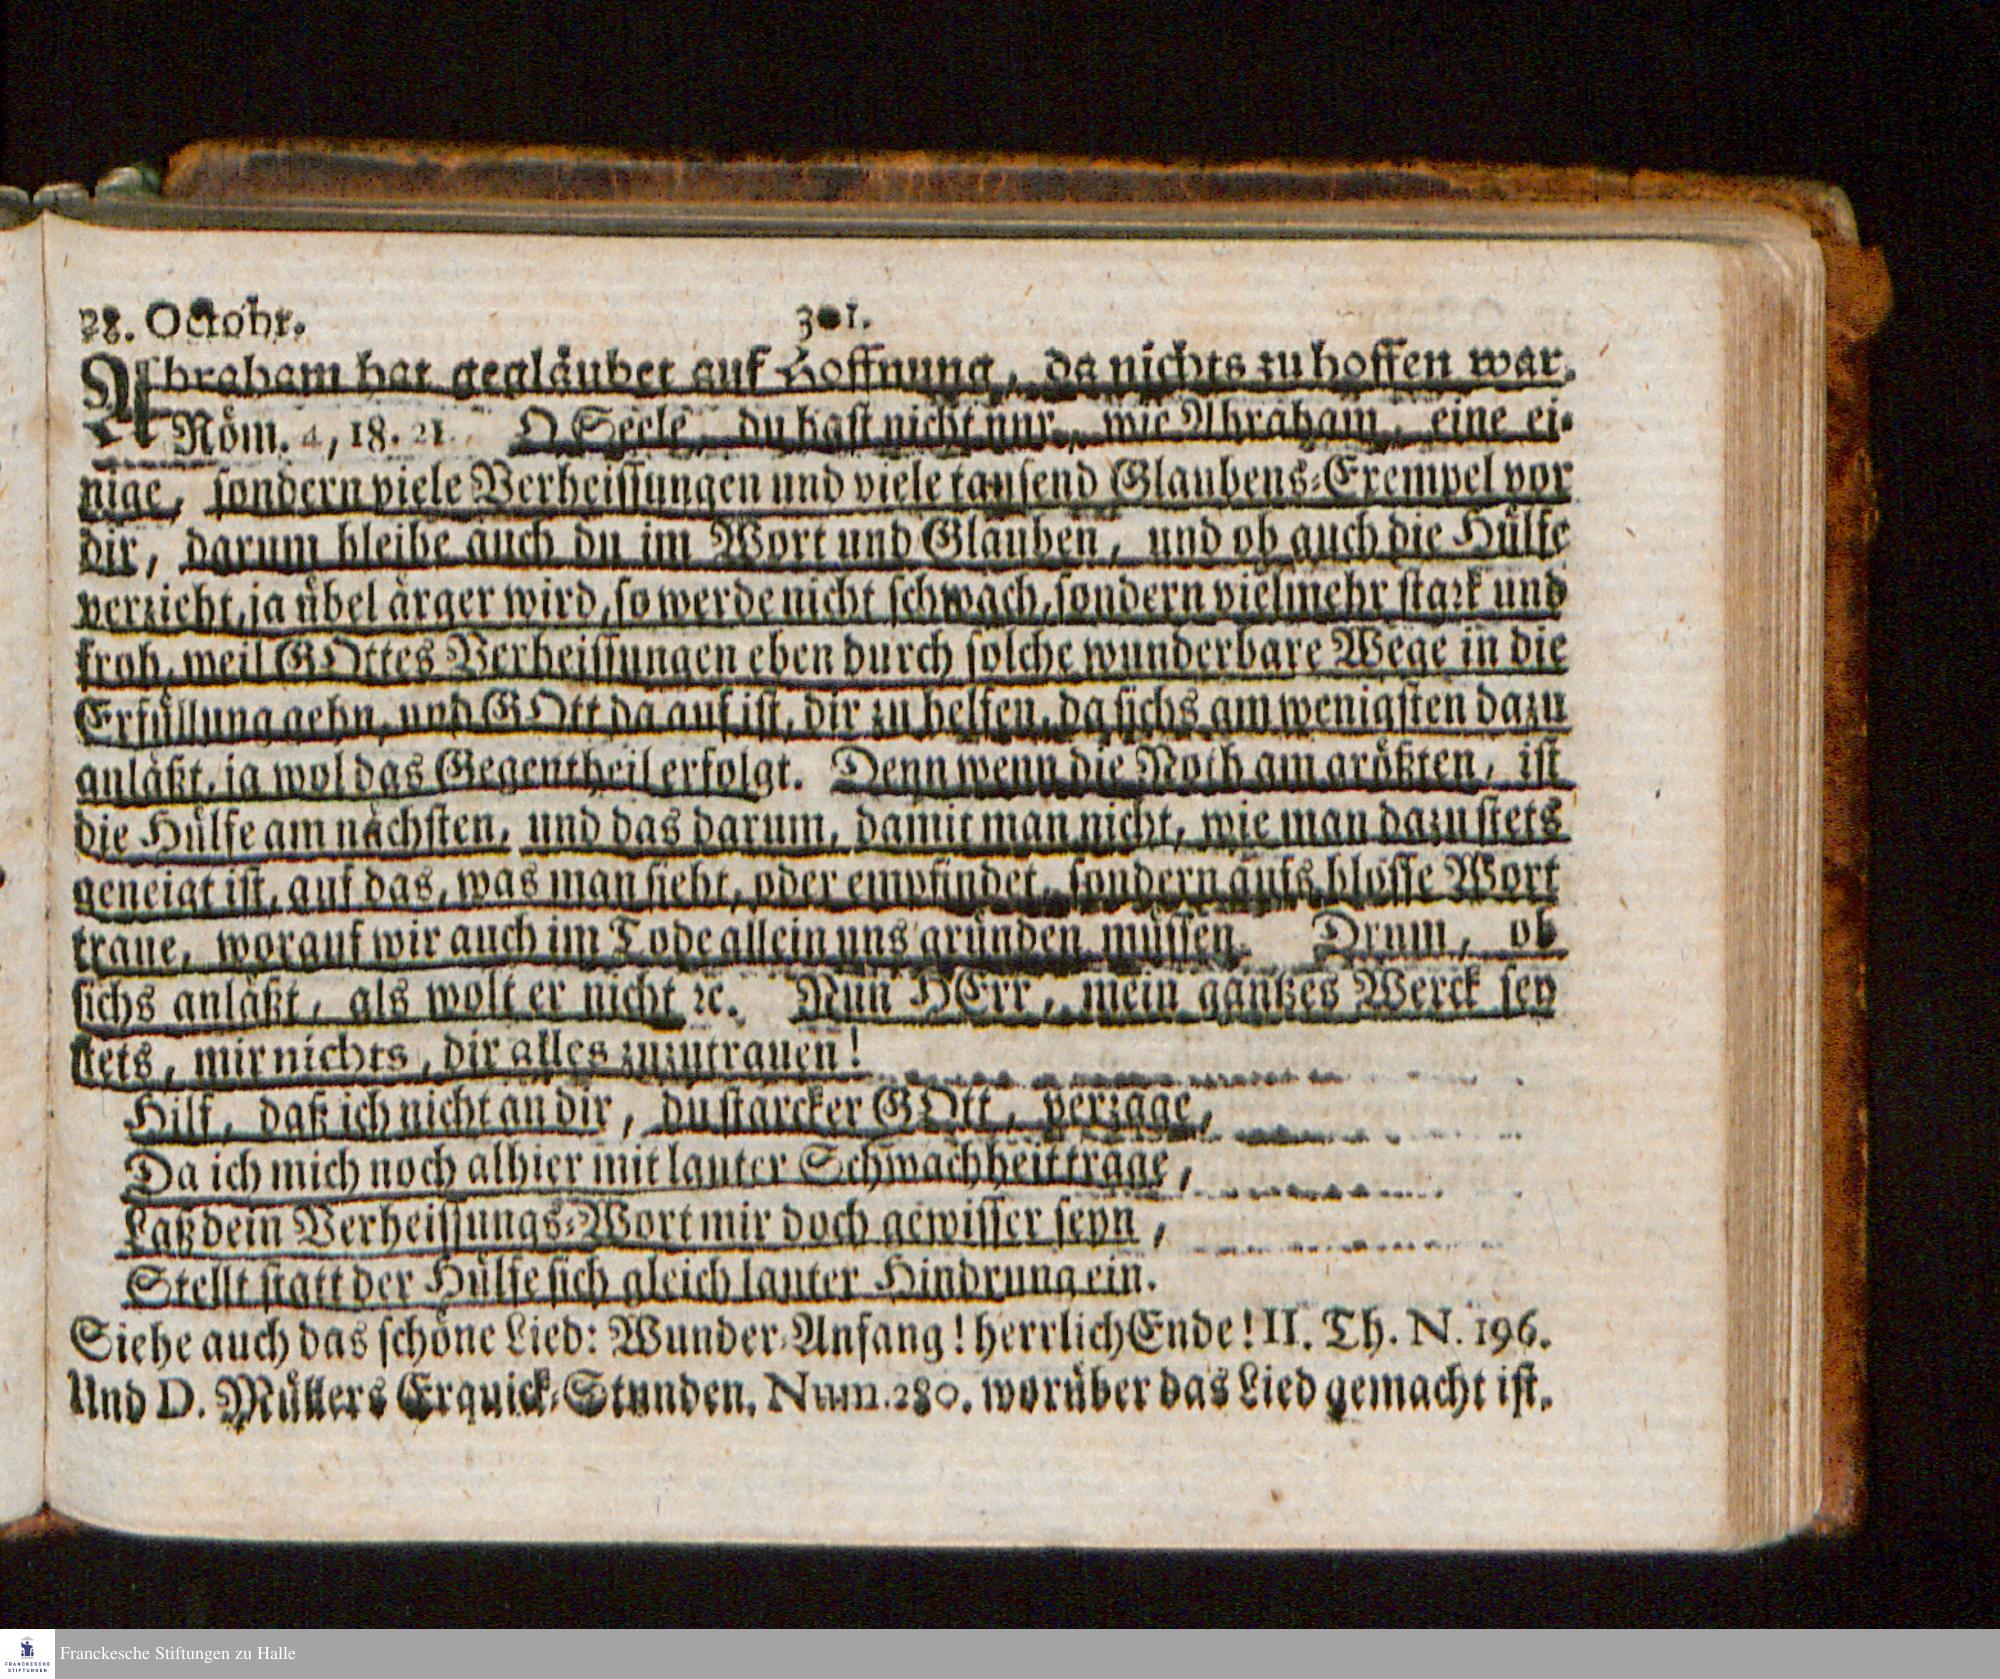 28. Octobr. 301.
Abraham hat gegläubet auf Hoffnung, da nichts zu hoffen war.
Röm. 4, 18. 21. O Seele, du hast nicht nur, wie Abraham, eine ei-
nige, sondern viele Verheissungen und viele tausend Glaubens-Exempel vor
dir, darum bleibe auch du im Wort und Glauben, und ob auch die Hülfe
verzieht, ja übel ärger wird, so werde nicht schwach, sondern vielmehr stark und
froh, weil GOttes Verheissungen eben durch solche wunderbare Wege in die
Erfüllung gehn, und GOtt da auf ist, dir zu helfen, da sichs am wenigsten dazu
anläßt, ja wol das Gegentheil erfolgt. Denn wenn die Noth am größten, ist
die Hülfe am nächsten, und das darum, damit man nicht, wie man dazu stets
geneigt ist, auf das, was man sieht, oder empfindet, sondern aufs blosse Wort
traue, worauf wir auch im Tode allein uns gründen müssen. Drum, ob
sichs anläßt, als wolt er nicht ꝛc. Nun HErr, mein gantzes Werck sey
stets, mir nichts, dir alles zuzutrauen!
Hilf, daß ich nicht an dir, du starcker GOtt, verzage,
Da ich mich noch alhier mit lauter Schwachheit trage,
Laß dein Verheissungs-Wort mir doch gewisser seyn,
Stellt statt der Hülfe sich gleich lauter Hindrung ein.
Siehe auch das schöne Lied: Wunder-Anfang! herrlich Ende! II. Th. N. 196.
Und D. Müllers Erquick-Stunden, Num. 280. worüber das Lied gemacht ist.
FRANCKESCHE
STIFTUNGEN
Franckesche Stiftungen zu Halle